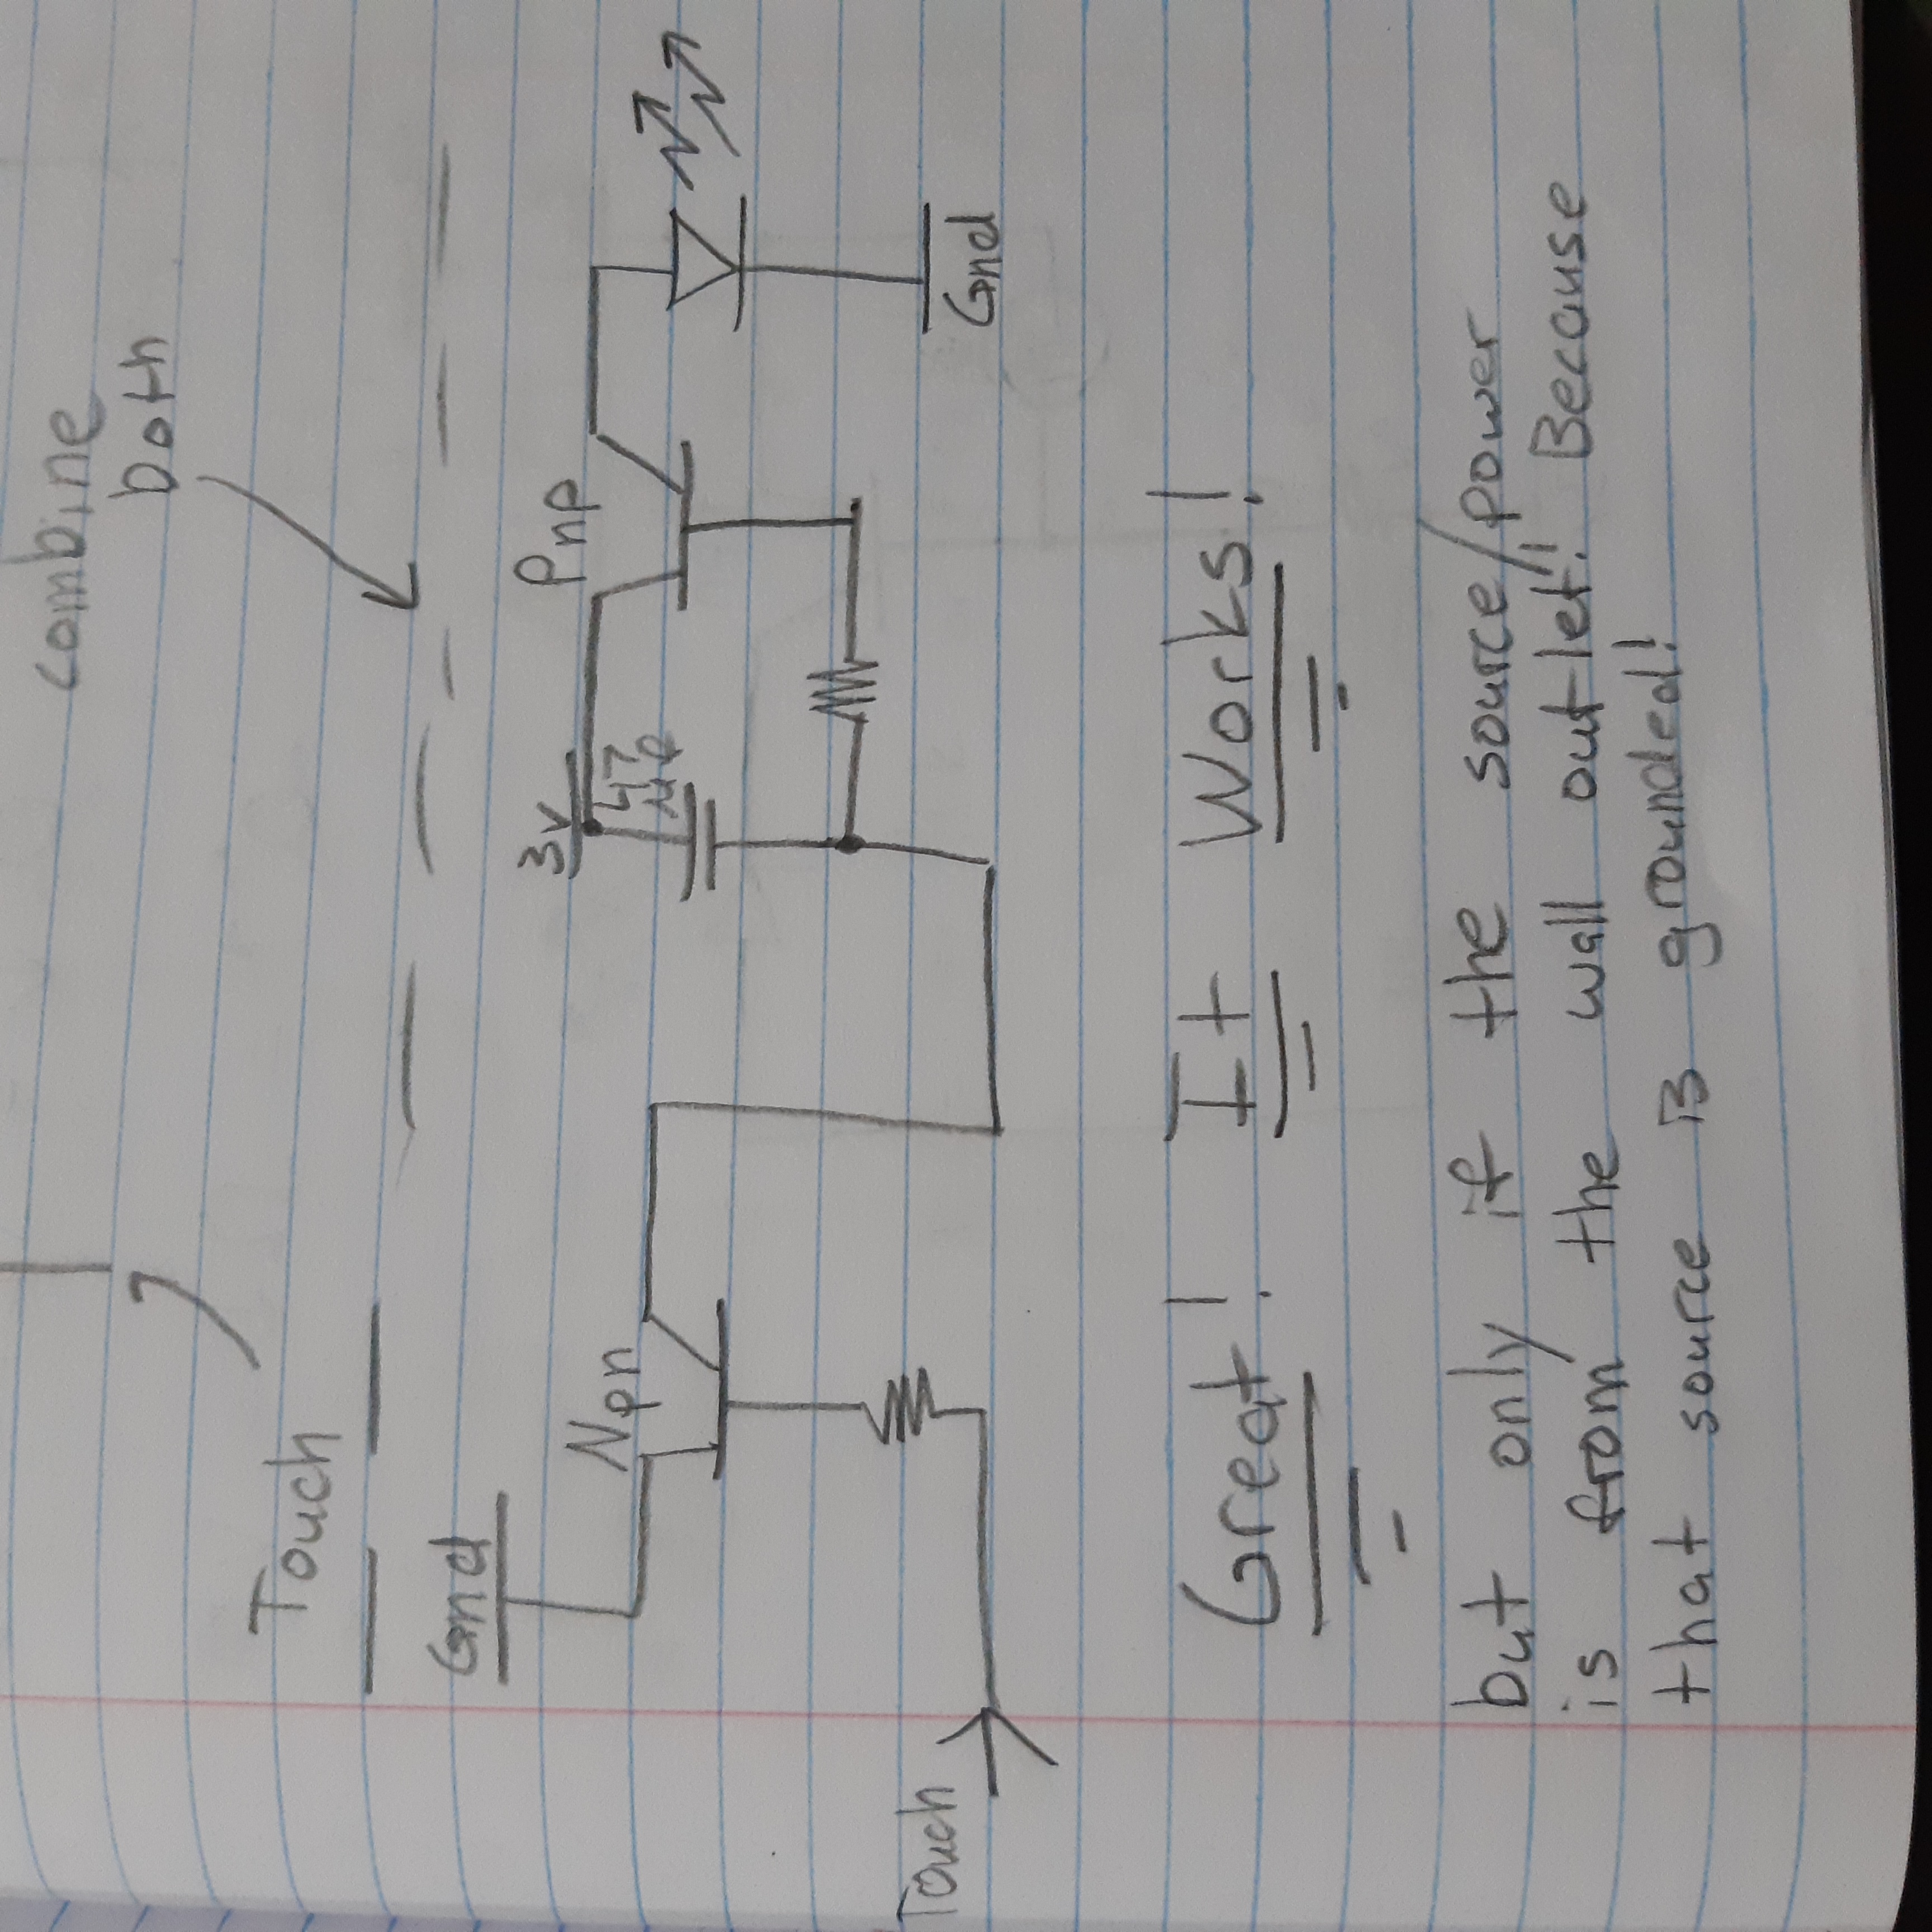 combine
both
Touch
Gnd
3v
Pnp
Npn
47
Touch
Gnd
Great! It Works!
but only if the source/power
is from the wall outlet!! Because
that source is grounded!